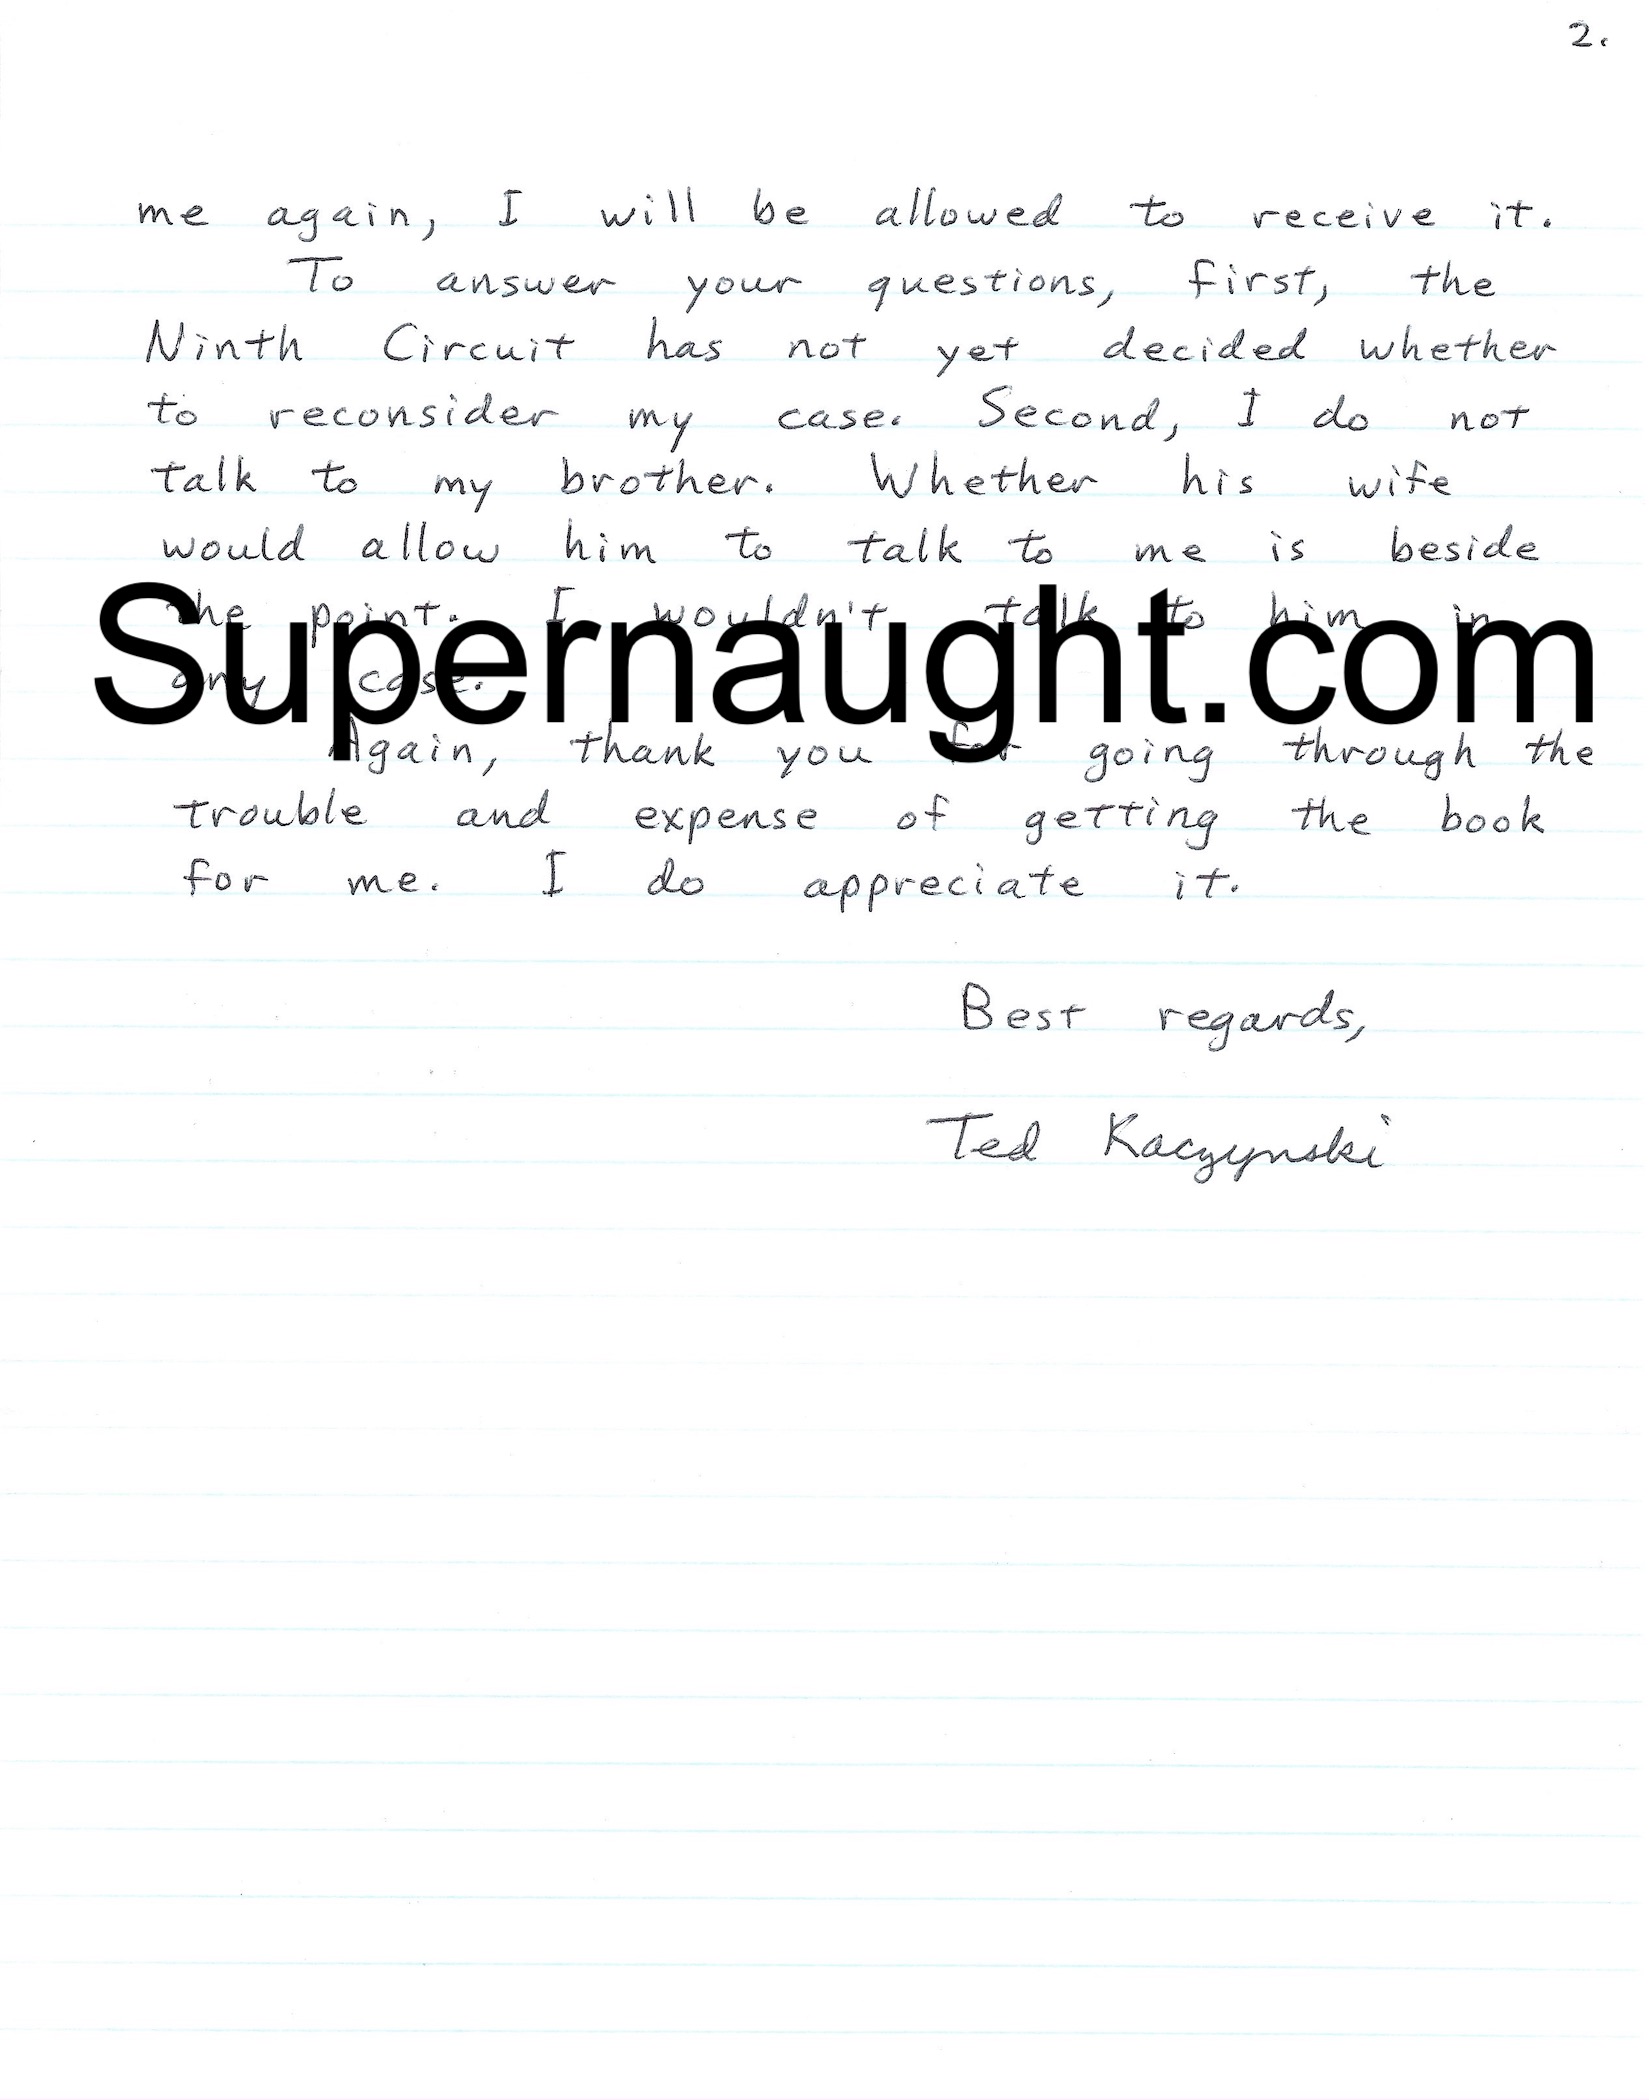 2.
me again, I will be allowed to receive it.
To answer your questions, first, the
Ninth Circuit has not yet decided whether
to reconsider my case. Second, I do not
talk to my brother. Whether his wife
would allow him to talk to me is beside
the point. I wouldn't talk to him in
Supernaught.com
any case.
Again, thank you for going through the
trouble and expense of getting the book
for me. I do appreciate it.
Best regards,
Ted Kaczynski